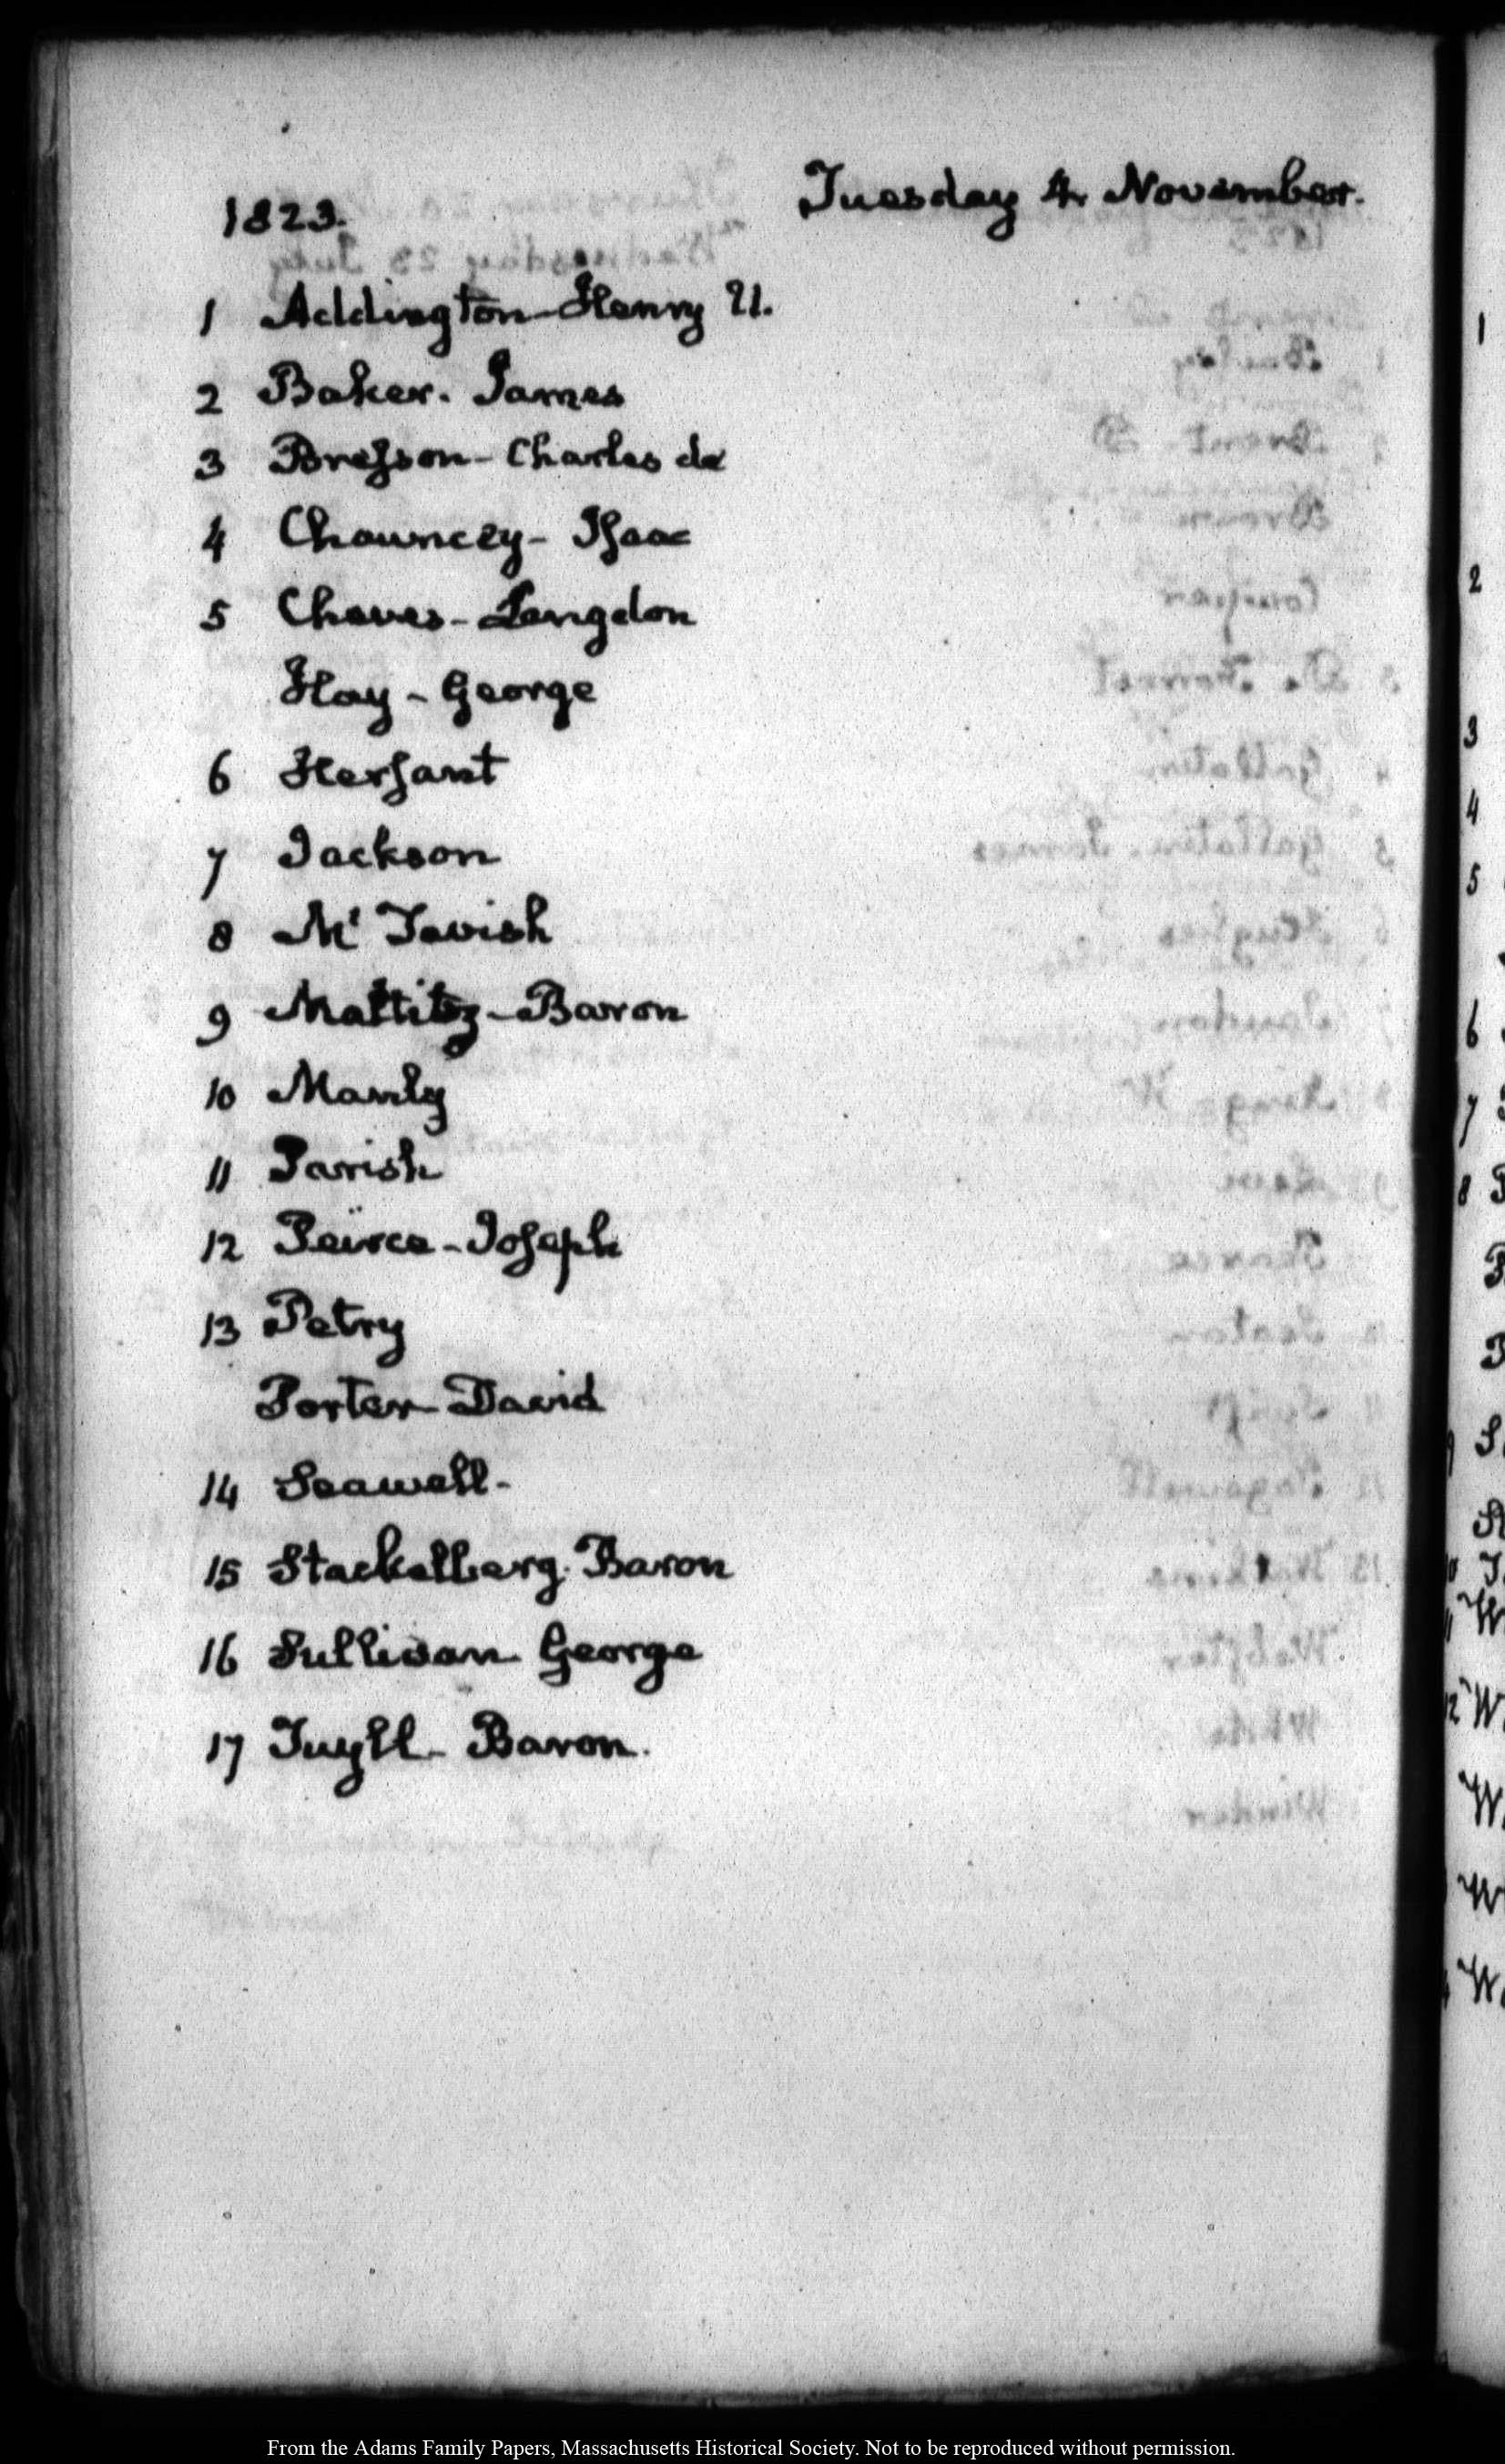 1823.
Tuesday 4. November.
1 Addington-Henry U.
2 Baker. James
3 Bresson-Charles de
4 Chauncey-Isaac
5 Cheves-Langdon
Hay-George
6 Hersant
7 Jackson
8 Mc Tavish
9 Maltitz-Baron
10 Manly
11 Parish
12 Peirce-Joseph
13 Petry
Porter-David
14 Seawell-
15 Stackelberg. Baron
16 Sullivan George
17 Tuyll-Baron.
1
2
3
4
5
6
7
8
From the Adams Family Papers, Massachusetts Historical Society. Not to be reproduced without permission.